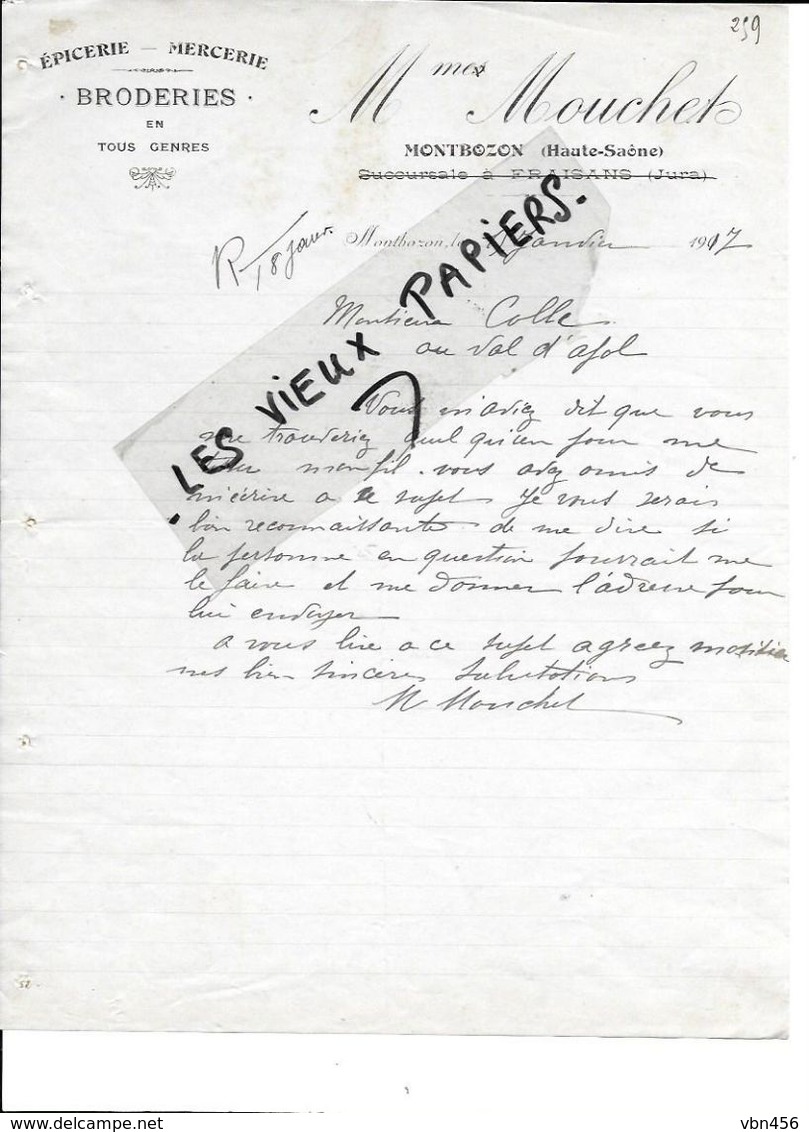 259
ÉPICERIE — MERCERIE
BRODERIES
EN
TOUS GENRES
Mmes Mouchet
MONTBOZON (Haute-Saône)
Succursale à FRAISANS (Jura)
R 18 janv.
Montbozon, le janvier 1917
LES VIEUX PAPIERS.
Monsieur Colle
au Val d'ajol
Vous m'aviez dit que vous
me trouveriez quelqu'un pour me
mon fil. vous avez omis de
m'écrire a ce sujet je vous serais
bien reconnaissante de me dire si
la personne en question pourrait me
le faire et me donner l'adresse pour
lui envoyer
a vous lire a ce sujet agreez monsieur
mes bien sincères salutations
M Mouchet
52
vbn456